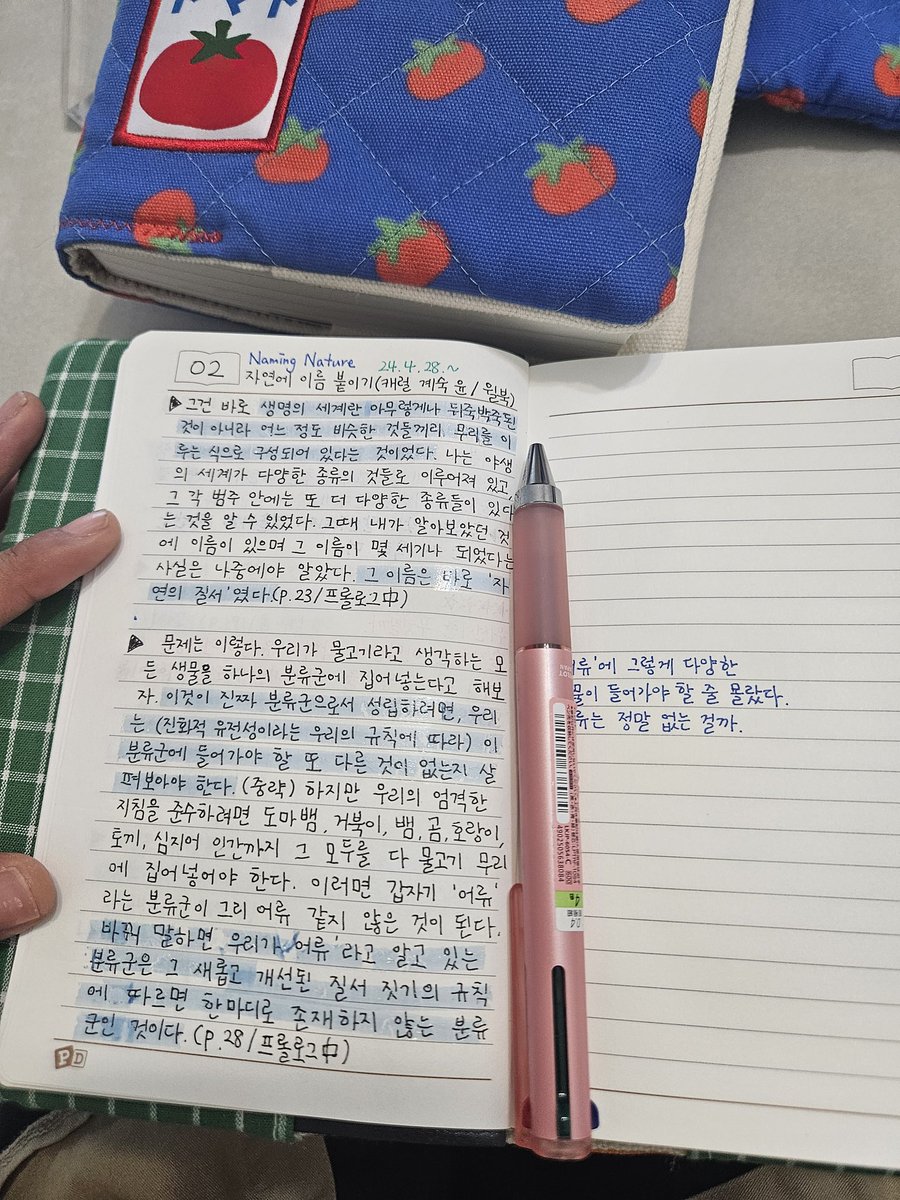 トマト
02
Naming Nature 24.4.28.~
자연에 이름 붙이기(캐럴 계숙 윤/윌북)
▶그건 바로 생명의 세계란 아무렇게나 뒤죽박죽된
것이 아니라 어느 정도 비슷한 것들끼리 무리를 이
루는 식으로 구성되어 있다는 것이었다. 나는 야생
의 세계가 다양한 종류의 것들로 이루어져 있고,
그 각 범주 안에는 또 더 다양한 종류들이 있다
는 것을 알 수 있었다. 그때 내가 알아보았던 것
에 이름이 있으며 그 이름이 몇 세기나 되었다는
사실은 나중에야 알았다. 그 이름은 바로 '자
연의 질서'였다.(p.23/프롤로그中)
▶ 문제는 이렇다. 우리가 물고기라고 생각하는 모
든 생물을 하나의 분류군에 집어넣는다고 해보
자. 이것이 진짜 분류군으로서 성립하려면, 우리
는 (진화적 유전성이라는 우리의 규칙에 따라) 이
분류군에 들어가야 할 또 다른 것이 없는지 살
펴보아야 한다. (중략) 하지만 우리의 엄격한
지침을 준수하려면 도마뱀, 거북이, 뱀, 곰, 호랑이,
토끼, 심지어 인간까지 그 모두를 다 물고기 무리
에 집어넣어야 한다. 이러면 갑자기 '어류'
라는 분류군이 그리 어류 같지 않은 것이 된다.
바꿔 말하면 우리가 '어류'라고 알고 있는
분류군은 그 새롭고 개선된 질서 짓기의 규칙
에 따르면 한마디로 존재하지 않는 분류
군인 것이다. (p.28/프롤로그中)
PD
류'에 그렇게 다양한
물이 들어가야 할 줄 몰랐다.
류는 정말 없는 걸까.
4902505638084
0.4